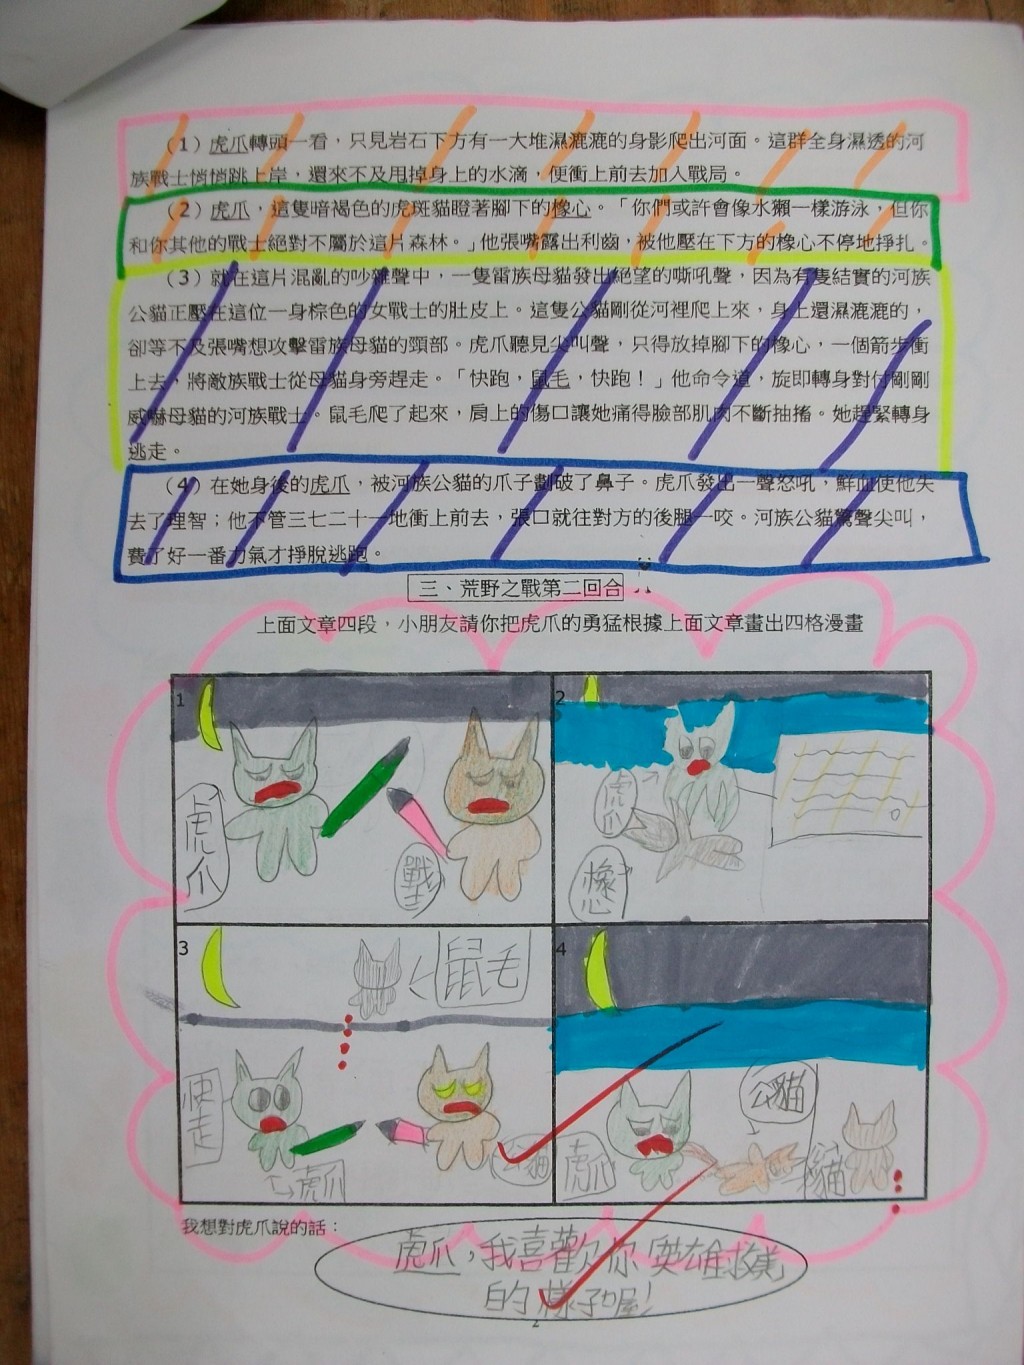 （1）虎爪轉頭一看，只見岩石下方有一大堆濕漉漉的身影爬出河面。這群全身濕透的河
族戰士悄悄跳上岸，還來不及甩掉身上的水滴，便衝上前去加入戰局。
（2）虎爪，這隻暗褐色的虎斑貓瞪著腳下的橡心。「你們或許會像水獺一樣游泳，但你
和你其他的戰士絕對不屬於這片森林。」他張嘴露出利齒，被他壓在下方的橡心不停地掙扎。
（3）就在這片混亂的吵雜聲中，一隻雷族母貓發出絕望的嘶吼聲，因為有隻結實的河族
公貓正壓在這位一身棕色的女戰士的肚皮上。這隻公貓剛從河裡爬上來，身上還濕漉漉的，
卻等不及張嘴想攻擊雷族母貓的頸部。虎爪聽見尖叫聲，只得放掉腳下的橡心，一個箭步衝
上去，將敵族戰士從母貓身旁趕走。「快跑，鼠毛，快跑！」他命令道，旋即轉身對付剛剛
威嚇母貓的河族戰士。鼠毛爬了起來，肩上的傷口讓她痛得臉部肌肉不斷抽搐。她趕緊轉身
逃走。
（4）在她身後的虎爪，被河族公貓的爪子劃破了鼻子。虎爪發出一聲怒吼，鮮血使他失
去了理智；他不管三七二十一地衝上前去，張口就往對方的後腿一咬。河族公貓驚聲尖叫，
費了好一番力氣才掙脫逃跑。
三、荒野之戰第二回合
上面文章四段，小朋友請你把虎爪的勇猛根據上面文章畫出四格漫畫
1
虎爪
戰士
2
虎爪
橡心
3
鼠毛
快走
虎爪
公貓
4
公貓
虎爪
貓
我想對虎爪說的話：
虎爪，我喜歡你英雄救美
的樣子喔！
2